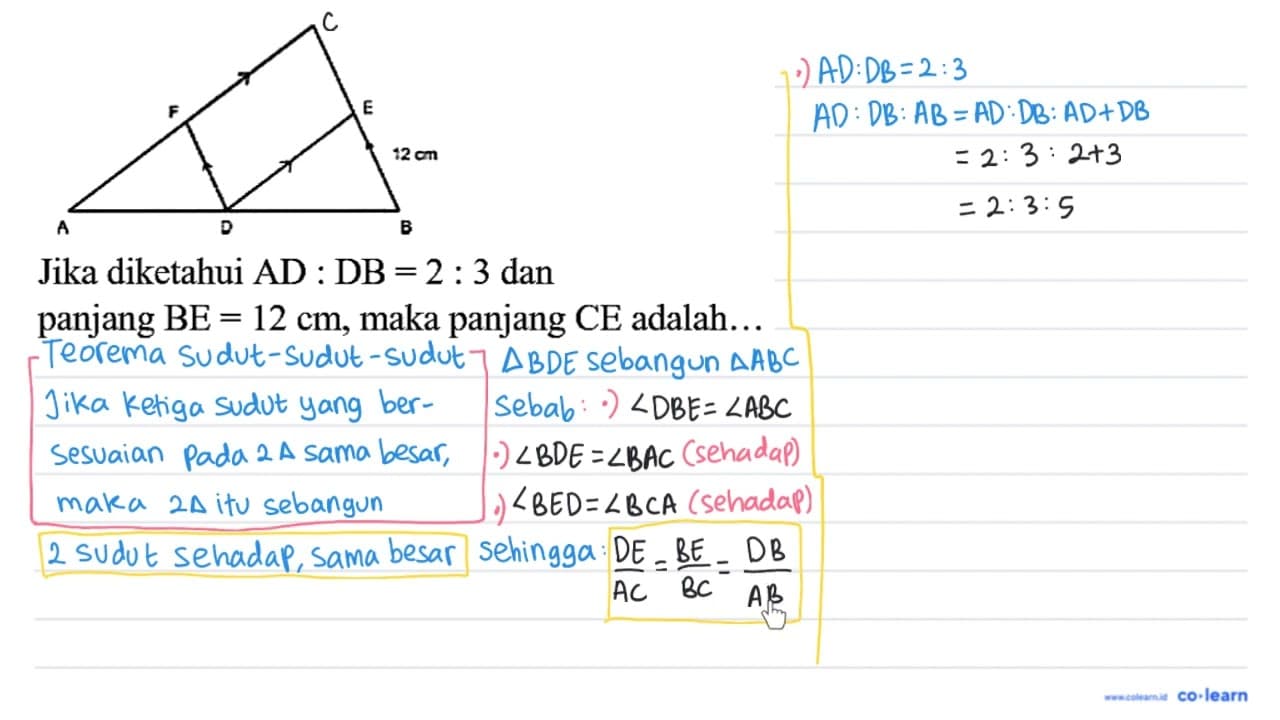 C
F
E
12 cm
A
D
B
Jika diketahui AD : DB = 2 : 3 dan
panjang BE = 12 cm, maka panjang CE adalah...
Teorema Sudut-Sudut-Sudut
Jika ketiga sudut yang ber-
sesuaian pada 2Δ sama besar,
maka 2Δ itu sebangun
2 sudut sehadap, sama besar
ΔBDE sebangun ΔABC
Sebab: •) ∠DBE = ∠ABC
•) ∠BDE = ∠BAC (sehadap)
•) ∠BED = ∠BCA (sehadap)
sehingga: DE/AC = BE/BC = DB/AB
•) AD:DB = 2:3
AD : DB : AB = AD : DB : AD+DB
= 2 : 3 : 2+3
= 2 : 3 : 5
www.colearn.id co·learn